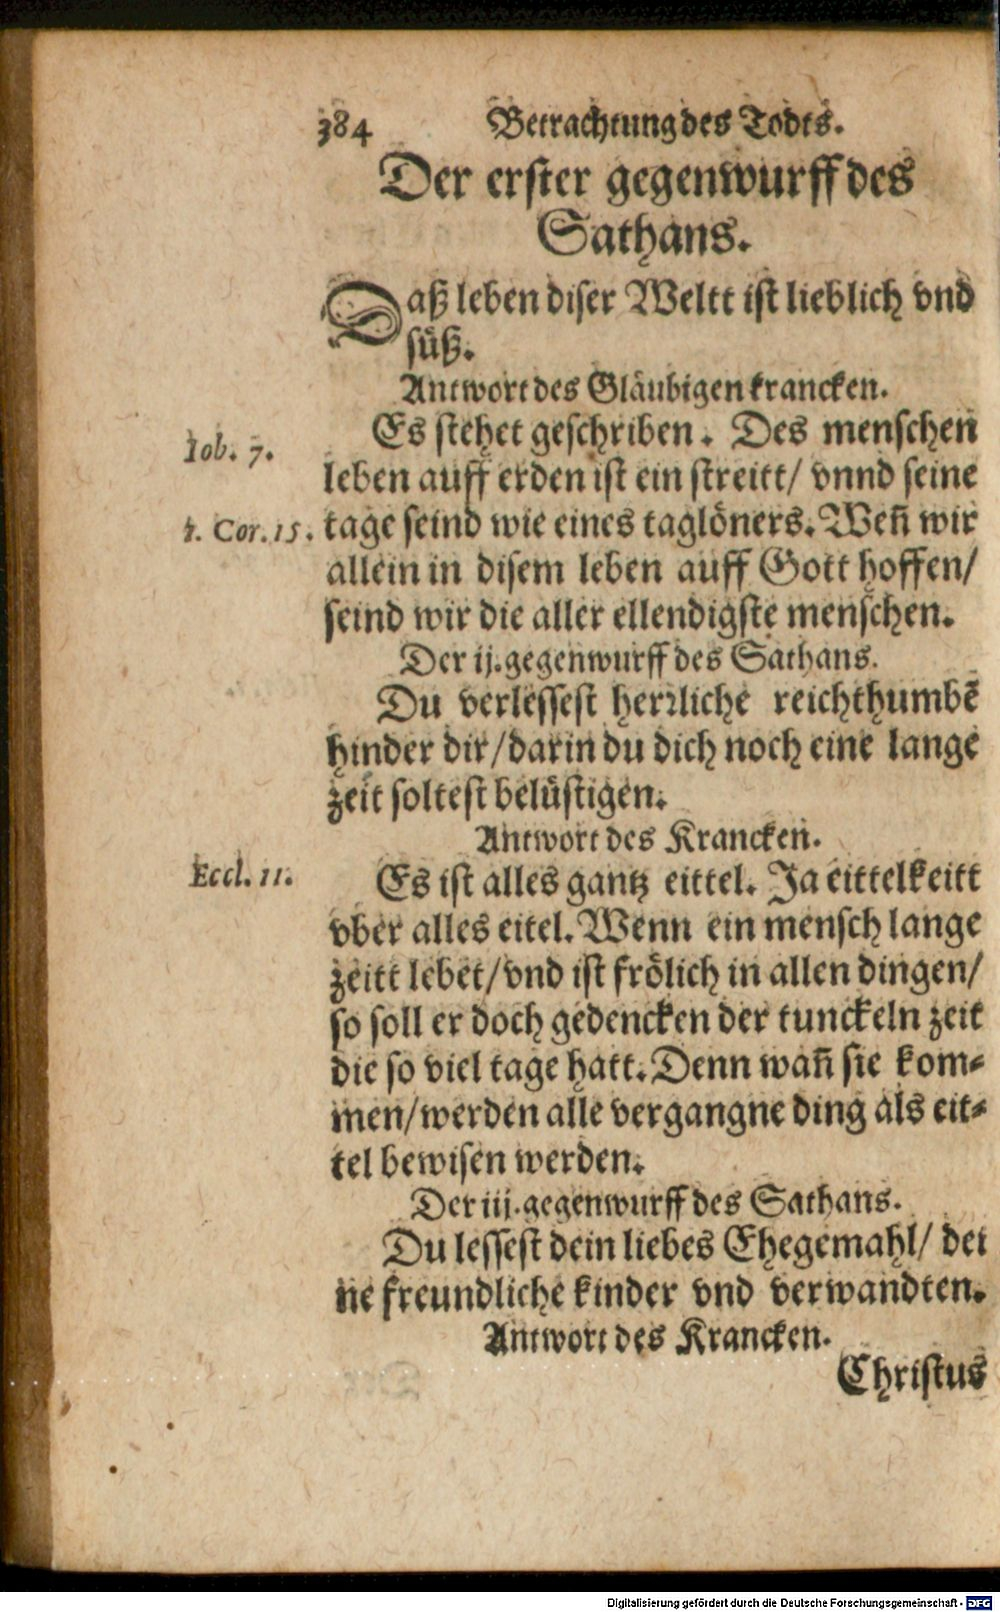 384 Betrachtung des Todts.
Der erster gegenwurff des
Sathans.
Daß leben diser Weltt ist lieblich vnd
süß.
Antwort des Gläubigen krancken.
Es stehet geschriben. Des menschen
Iob. 7.
leben auff erden ist ein streitt/ vnnd seine
1. Cor. 15. tage seind wie eines taglöners. Weñ wir
allein in disem leben auff Gott hoffen/
seind wir die aller ellendigste menschen.
Der ij. gegenwurff des Sathans.
Du verlessest herꝛliche reichthumbẽ
hinder dir/ darin du dich noch eine lange
zeit soltest belüstigen.
Antwort des Krancken.
Eccl. 11. Es ist alles gantz eittel. Ja eittelkeitt
vber alles eitel. Wenn ein mensch lange
zeitt lebet/ vnd ist frölich in allen dingen/
so soll er doch gedencken der tunckeln zeit
die so viel tage hatt. Denn wañ sie kom-
men/ werden alle vergangne ding als eit-
tel bewisen werden.
Der iij. gegenwurff des Sathans.
Du lessest dein liebes Ehegemahl/ dei
ne freundliche kinder vnd verwandten.
Antwort des Krancken.
Christus
Digitalisierung gefördert durch die Deutsche Forschungsgemeinschaft - DFG